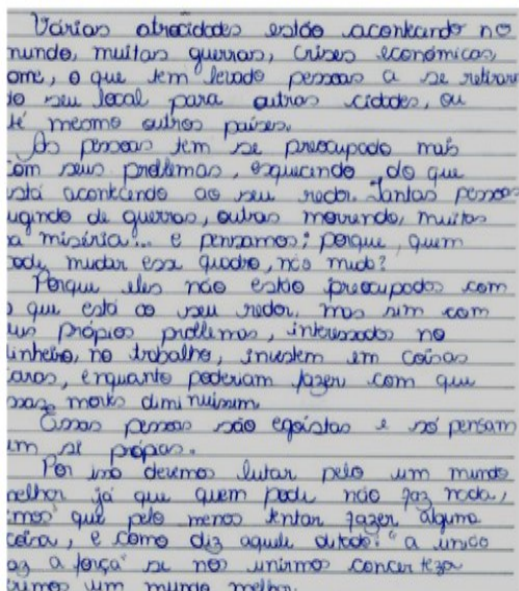 Várias atrocidades estão acontecando no
mundo, muitas guerras, crises económicas,
ome, o que tem levado pessoas a se retirare
do seu local para outras cidades, ou
té mesmo outros países.
As pessoas tem se preocupado mais
com seus problemas, esquecendo do que
stá acontecendo ao seu redor. Tantas pessoas
ugindo de guerras, outras morrendo, muitas
a miséria... e pensamos; porque, quem
pode mudar esse quadro, não muda?
Porque eles não estão preocupados com
o que está ao seu redor, mas sim com
eus própios problemas, interessados no
inheiro, no trabalho, investem em coisas
caras, enquanto poderiam fazer com que
ssas mortes diminuissem.
Essas pessoas são egoistas e só pensam
em si própas.
Por isso devemos lutar pelo um mundo
melhor já que quem pode não faz nada,
emos que pelo menos tentar fazer alguma
coisa, e como diz aquele ditado: "a unico
az a força" se nos unirmos concerteza
rimos um mundo melhor.